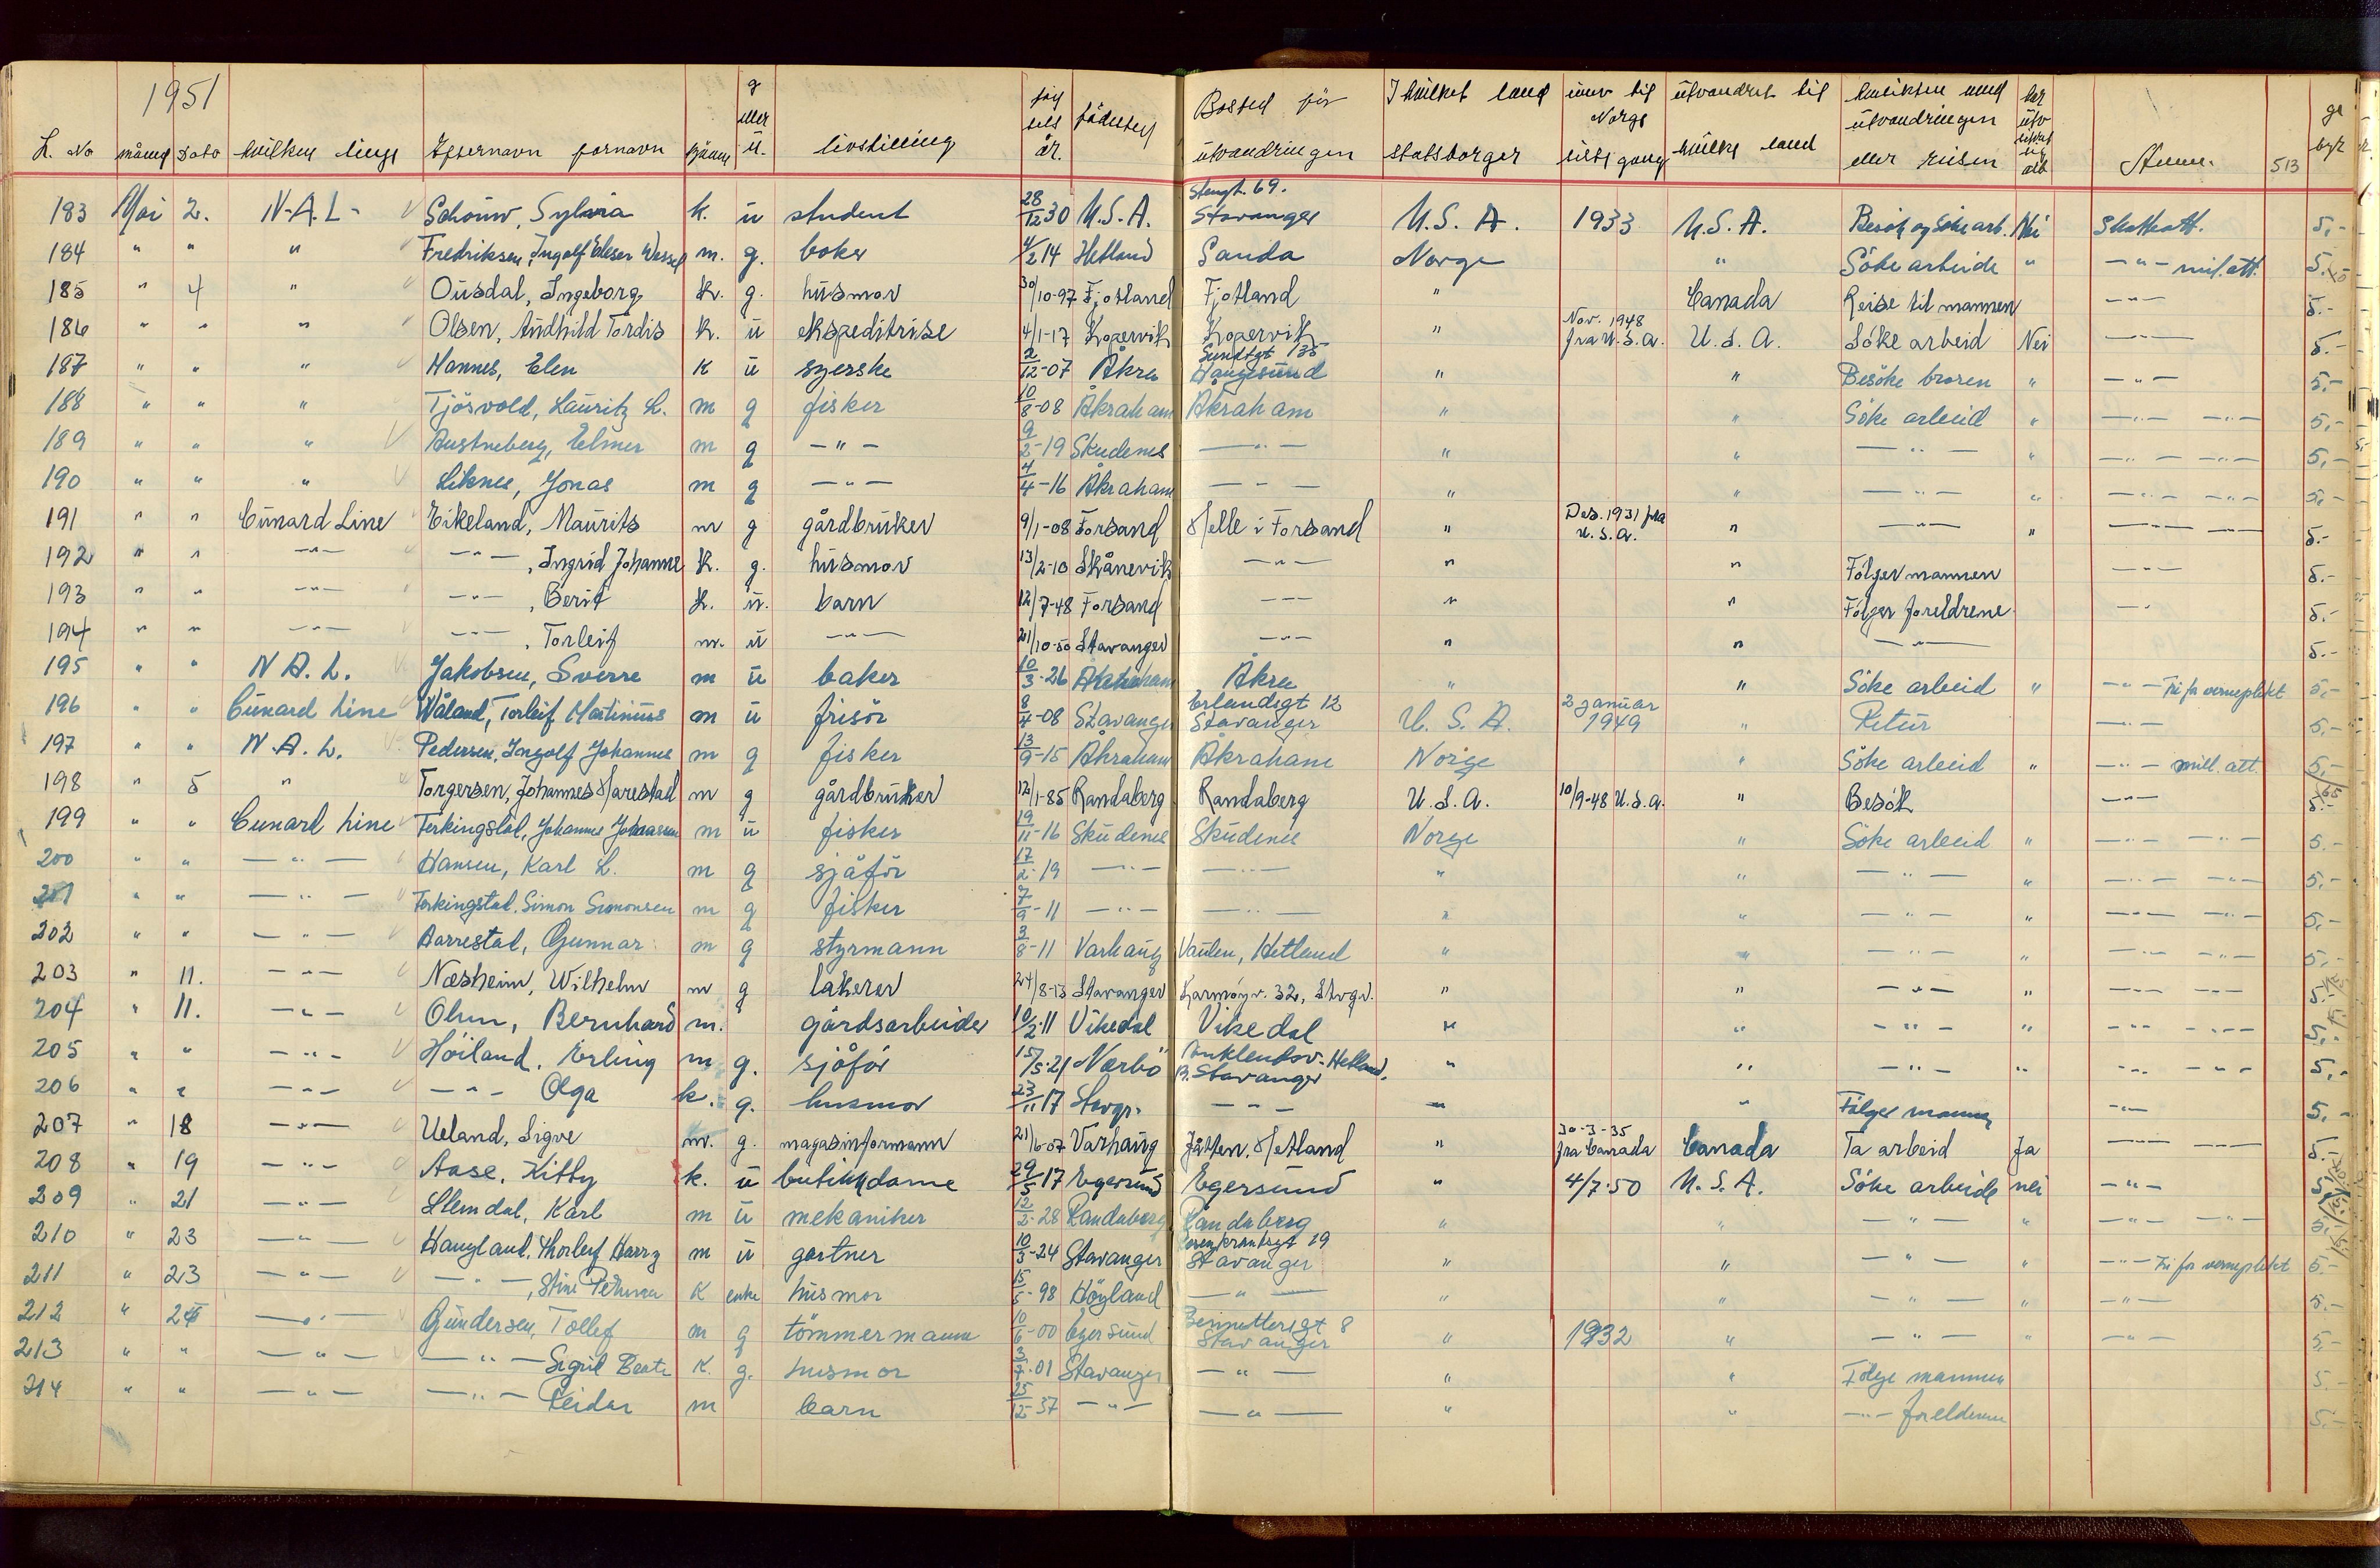 1951
L. No måned Dato hvilken linje Efternavn fornavn kjönn g eller u. livstilling föd sels år. födested Bosted för utvandringen I hvilket land statsborger innv til Norge siste gang utvandret til hvilke land hensikten med utvandringen eller reisen Anm. 513 gebyr
183 Mai 2. N.A.L. Schouw, Sylvia k. u student 28/12 30 U.S.A. Stengt. 69. Stavanger U.S.A. 1933 U.S.A. Besök og söke arb. Nei Skatteatt. 5,-
184 " " " Fredriksen, Ingolf Wessel m. g. 4/2 14 Hetland Sauda Norge " Söke arbeide " -"- mil. att. 5.
185 " 4 " Ousdal, Ingeborg k. g. husmor 30/10-97 Fjotland Fjotland " Canada Reise til mannen -"- 5.-
186 " " " Olsen, Andhild Tordis k. u ekspeditrise 4/1-17 Kopervik Kopervik " Nov. 1948 fra U.S.A. U.S.A. Söke arbeid Nei -"- 5.-
187 " " " Hannes, Elen k u syerske 2/12-07 Åkra Sundtgt 135 Haugesund " " Besöke broren " -"- 5,-
188 " " " Tjösvold, Lauritz L. m g fisker 10/8-08 Åkraham Åkraham " " Söke arbeid " -"- -"- 5,-
189 " " " Austneberg, Elmer m g -"- 9/2-19 Skudenes -"- " " -"- " -"- -"- 5,-
190 " " " Liknes, Jonas m g -"- 4/4-16 Åkraham -"- " " -"- " -"- -"- 5,-
191 " " Cunard Line Eikeland, Maurits m g gårdbruker 9/1-08 Forsand Helle i Forsand " Des. 1931 fra U.S.A. " -"- " -"- -"- 5.-
192 " " -"- -"-, Ingrid Johanne k. g. husmor 13/2-10 Skånevik -"- " " Fölger mannen -"- 5.-
193 " " -"- -"-, Berit k. u. barn 12/7-48 Forsand -"- " " Fölger foreldrene -"- 5.-
194 " " -"- -"-, Torleif m. u -"- 21/10-50 Stavanger -"- " " -"- 5.-
195 " " N.A.L. Jakobsen, Sverre m u baker 10/3-26 Åkraham Åkra " " Söke arbeid " -"- Fri for verneplikt 5,-
196 " " Cunard Line Wåland, Torleif Martinius m u frisör 8/4-08 Stavanger Erlandsgt 12 Stavanger U.S.A. 2 januar 1949 " Retur -"- 5,-
197 " " N.A.L. Pedersen, Ingolf Johannes m g fisker 13/9-15 Åkraham Åkraham Norge " Söke arbeid " -"- mill. att. 5,-
198 " 5 " Torgersen, Johannes Harestad m g gårdbruker 12/1-85 Randaberg Randaberg U.S.A. 10/9-48 U.S.A. " Besök -"- 5.-
199 " " Cunard Line Ferkingstad, Johannes Johannesen m u fisker 19/11-16 Skudenes Skudenes Norge " Söke arbeid " -"- -"- 5.-
200 " " -"- Hansen, Karl L. m g sjåför 17/2-19 -"- -"- " " -"- " -"- -"- 5,-
201 " " -"- Ferkingstad, Simon Simonsen m g fisker 7/9-11 -"- -"- " " -"- " -"- -"- 5,-
202 " " -"- Aarrestad, Gunnar m g styrmann 3/8-11 Varhaug Vaulen, Hetland " " -"- " -"- -"- 5,-
203 " 11. -"- Næsheim, Wilhelm m g lakerer 24/8-13 Stavanger Karmöyv. 32, Stvgr. " " -"- " -"- -"- 5.-
204 " 11. -"- Ohm, Bernhard m. gårdsarbeider 10/2-11 Vikedal Vikedal " " -"- " -"- -"- 5,-
205 " " -"- Höiland, Erling m g. sjåför 15/5-21 Nærbö Hetland, Stavanger " " -"- " -"- -"- 5,-
206 " " -"- -"- Olga k. g. husmor 23/11 17 Stvgr. -"- " " Fölger mannen -"- 5,-
207 " 18 -"- Ueland, Sigve m. g. magasinformann 21/6-07 Varhaug Jåtten, Hetland " 30-3-35 fra Canada Canada Ta arbeid Ja -"- -"- 5.-
208 " 19 -"- Aase, Kitty k. u butikkdame 29/5 17 Egersund Egersund " 4/7-50 U.S.A. Söke arbeide nei -"- 5,-
209 " 21 -"- Slemdal, Karl m u mekaniker 12/2-28 Randaberg Randaberg " " -"- " -"- -"- 5,-
210 " 23 -"- Haugland, Thorleif Harry m u gartner 10/3-24 Stavanger Rosenkrantsgt 19 Stavanger " " -"- " -"- Fri for verneplikt 5.-
211 " 23 -"- -"-, Stine k enke husmor 15/5-98 Höyland -"- " " -"- " -"- 5.-
212 " 25 -"- Gundersen, Tollef m g tömmermann 10/6-00 Egersund Stavanger " 1932 " -"- " -"- 5,-
213 " " -"- -"- Sigrid Beate k. g. husmor 3/7-01 Stavanger -"- " " Fölge mannen 5.-
214 " " -"- -"- Reidar m barn 25/12-37 -"- -"- " " -"- foreldrene 5,-